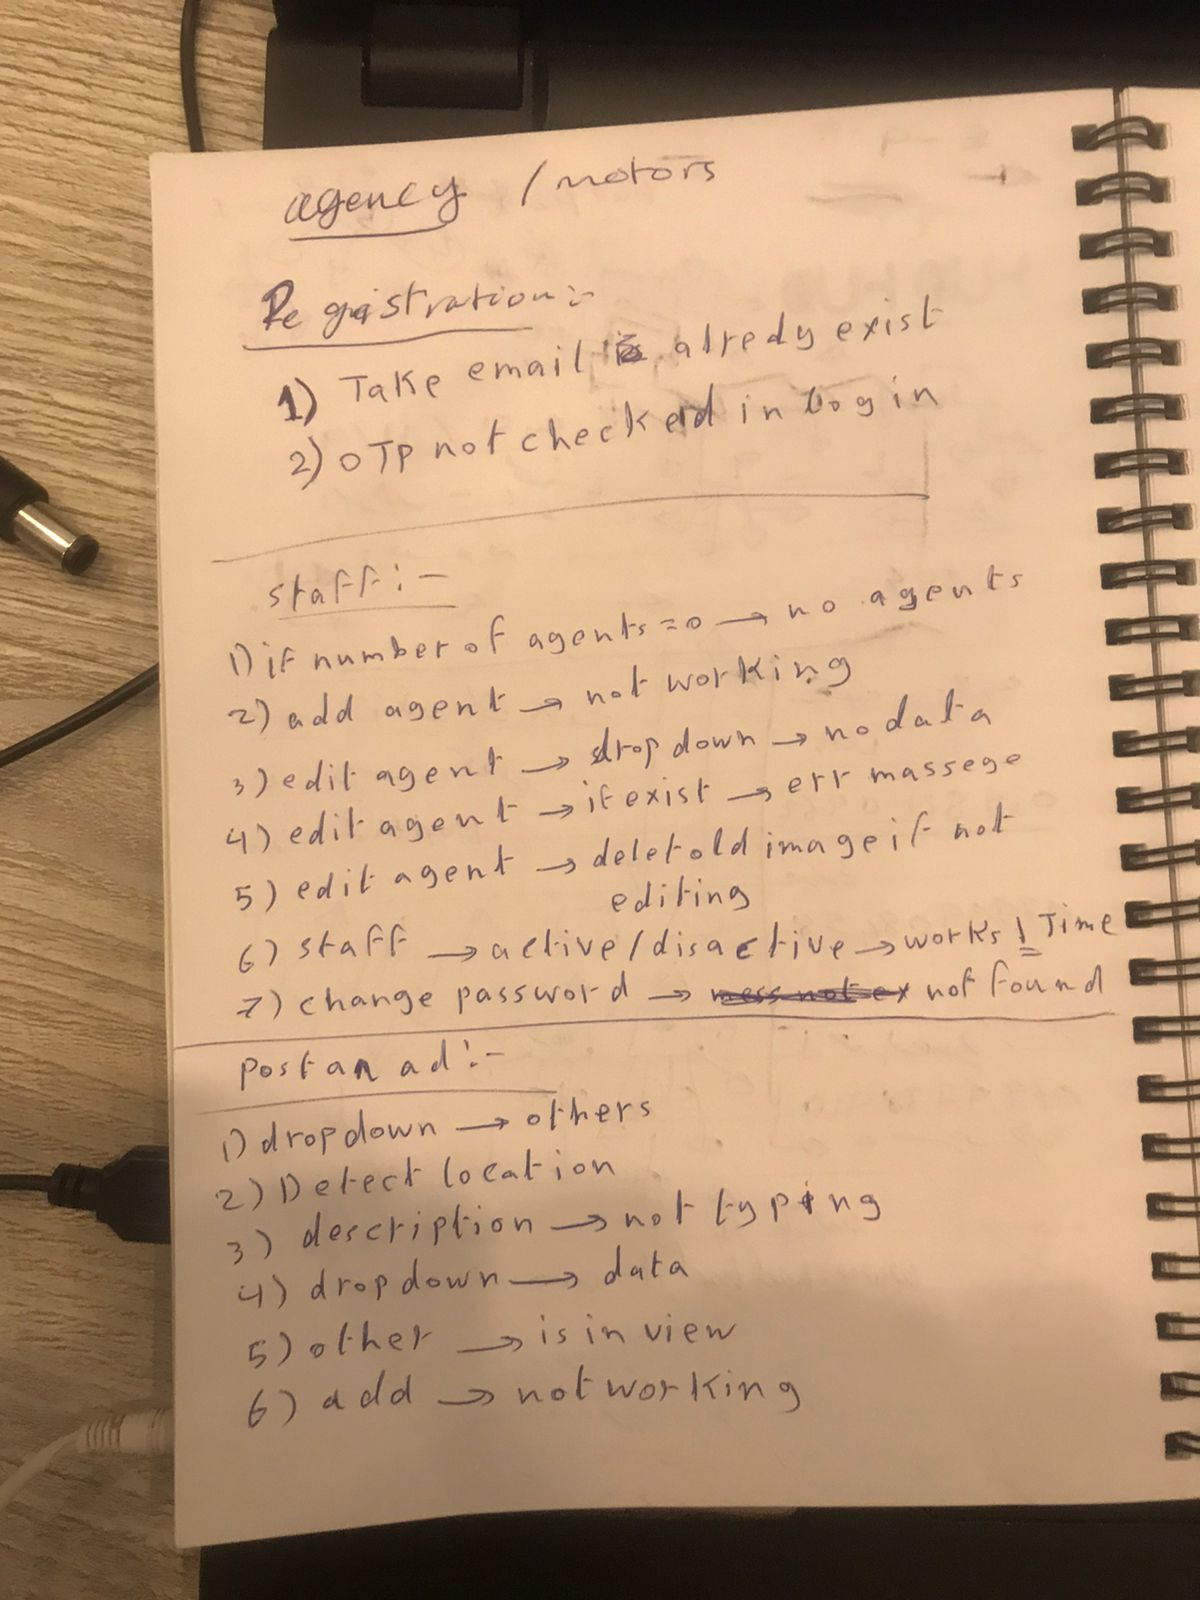 agency / motors
Registration:-
1) Take email alredy exist
2) OTP not checked in login
staff:-
1) if number of agents=0 → no agents
2) add agent → not working
3) edit agent → dropdown → no data
4) edit agent → if exist → err massege
5) edit agent → delet old image if not
editing
6) staff → active/disactive → works 1 Time
7) change password → not found
post an ad:-
1) dropdown → others
2) Detect location
3) description → not typing
4) dropdown → data
5) other → is in view
6) add → not working